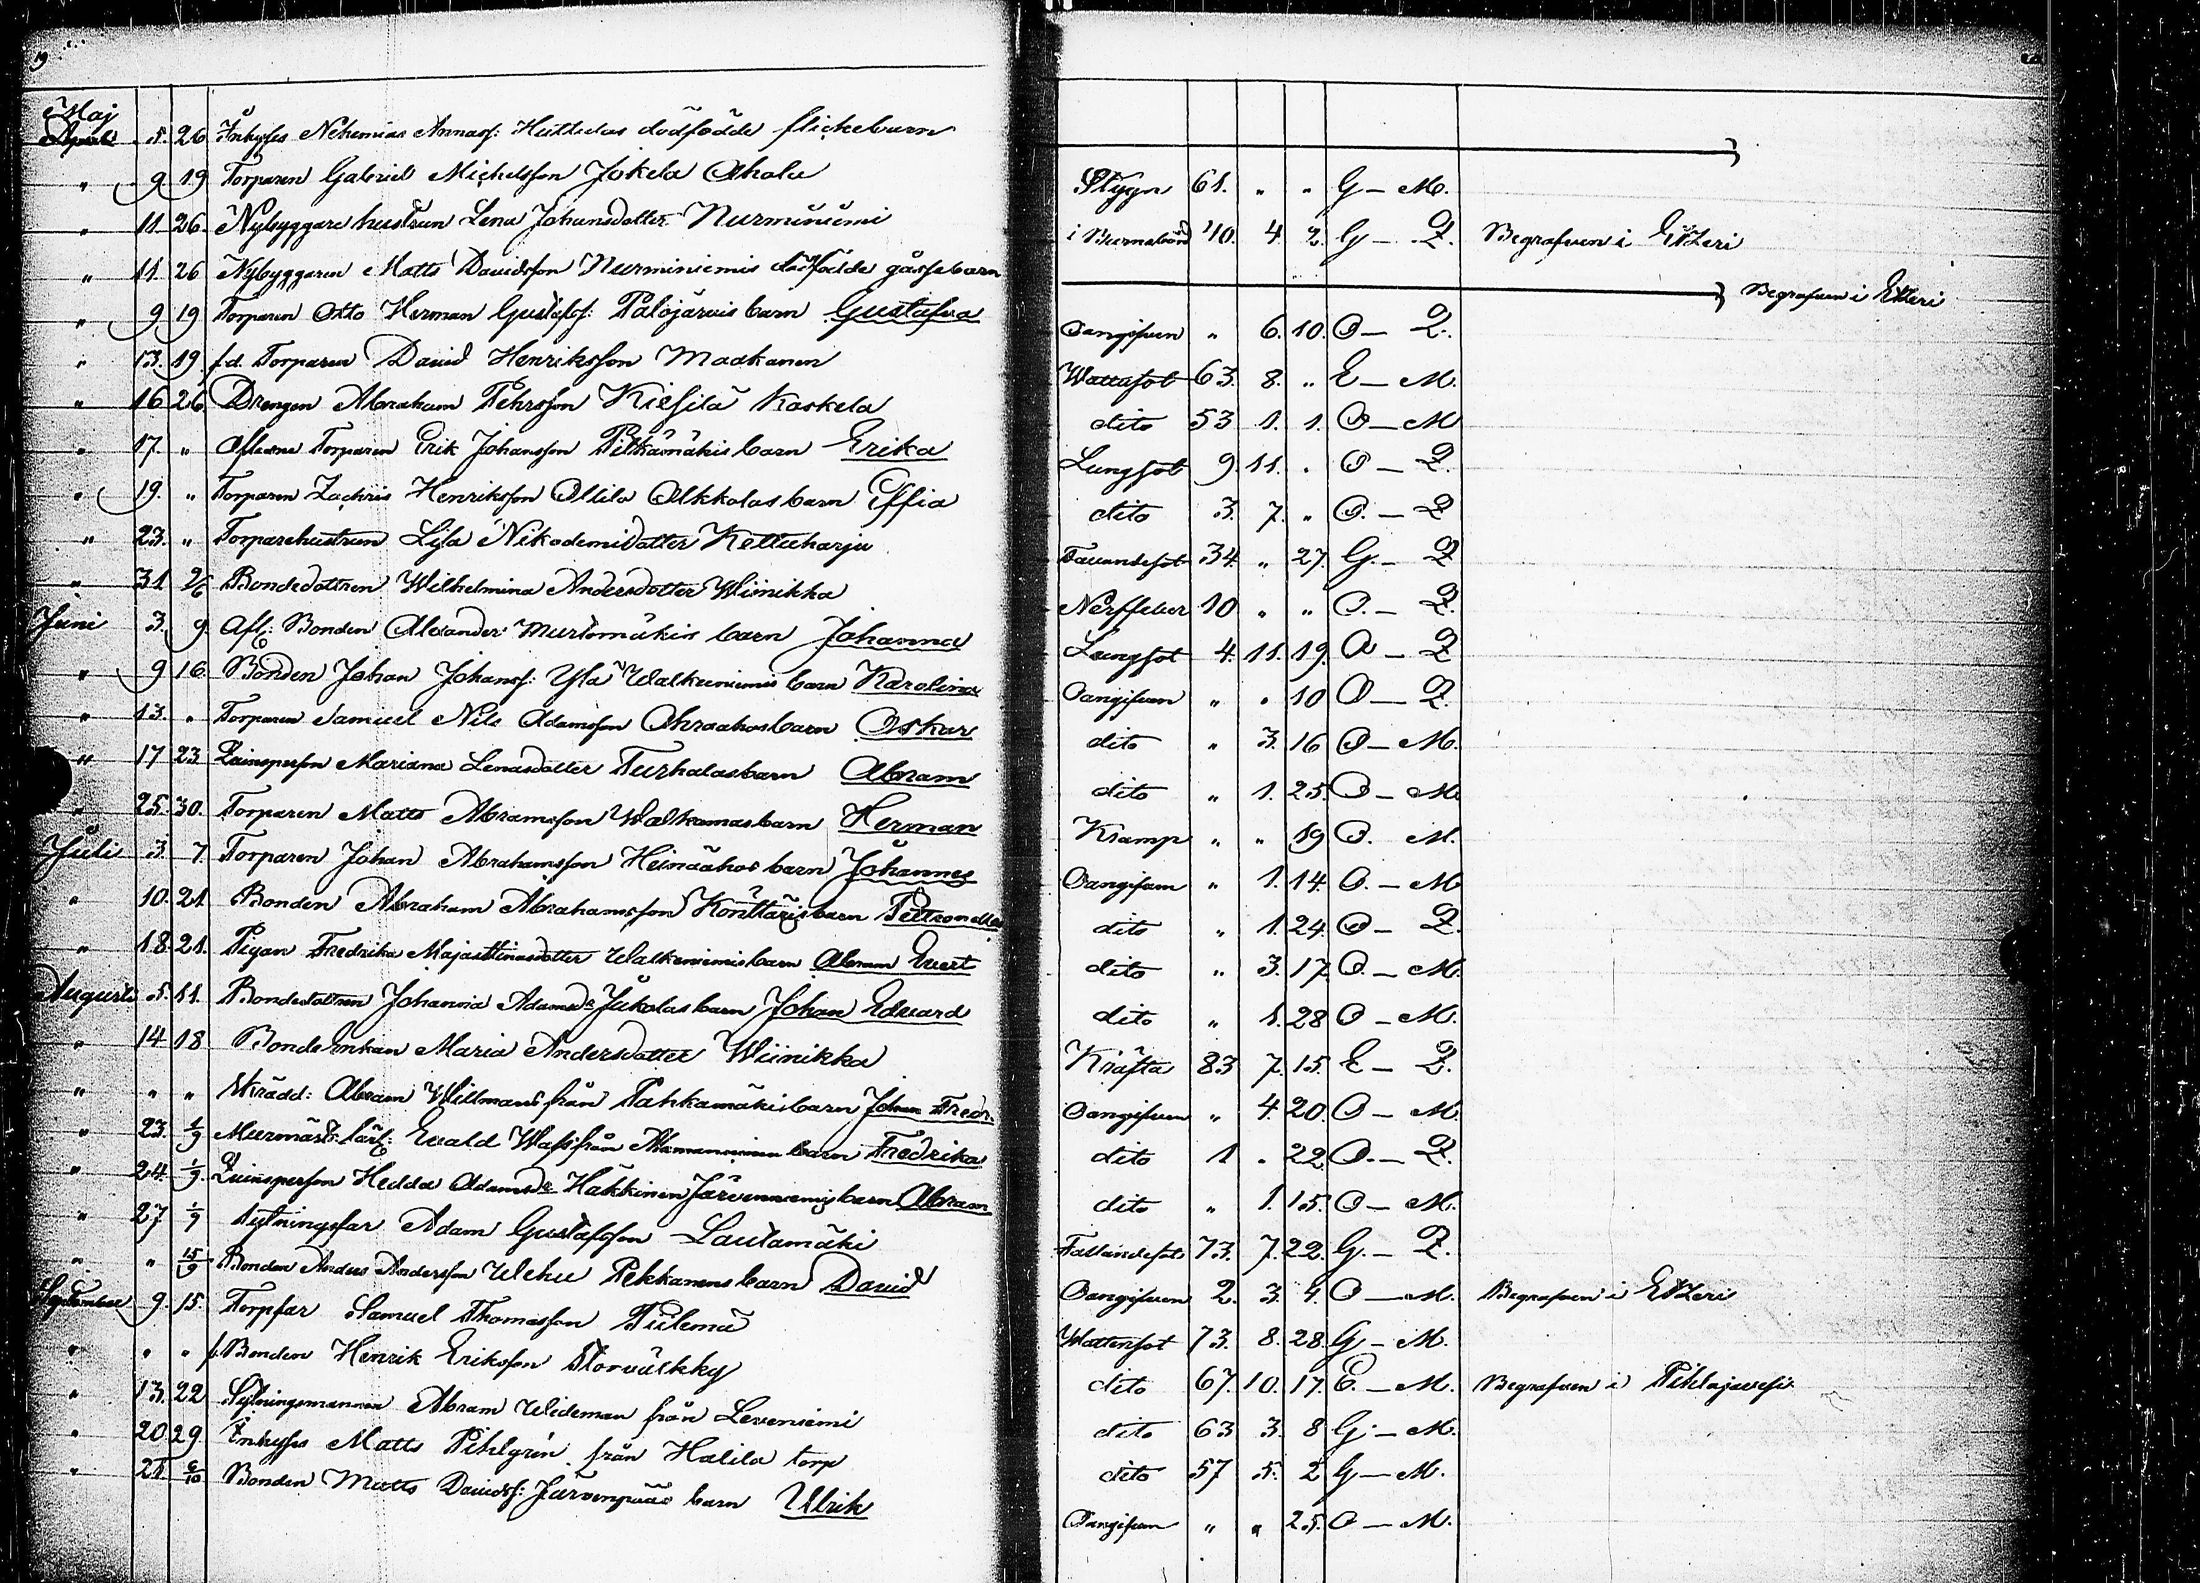 Maj
April 5. 26 Inhyses Nehemias Annasf: Huttulas dödfödde flickebarn
" 9. 19 Torparen Gabriel Michelsson Jokela Ahola Stygn 61. " " G – M.
" 11. 26. Nybyggare hustrun Lena Johansdotter Nurminiemi i Barnsbörd 40. 4. 2. G – Q. Begrafven i Etzeri
" 11. 26 Nybyggaren Matts Davidsson Nurminiemis dödfödde gåssebarn Begrafven i Etzeri
" 9 19 Torparen Otto Herman Gustafsf: Palojärvis barn Gustafva Oangifven " 6. 10. O – Q.
" 13. 19 f.d. Torparen David Henriksson Maakanen Wattusot 63. 8. " E – M.
" 16 26 Drengen Abraham Pehrsson Kiesilä Koskela dito 53 1. 1. O – M
" 17. " Afledne Torparen Erik Johansson Pitkämäkis barn Erika Lungsot 9. 11. " O – Q.
" 19. " Torparen Zachris Henriksson Ollila Alkkolas barn Effia dito 3. 7. " O. – Q
" 23. " Torparehustrun Lisa Nikodemidotter Kettuharju 34. " 27. G. – Q
" 31 2/6 Bondedottren Wilhelmina Andersdotter Wiinikka Nerffeber 10 " " O. – Q.
Juni 3. 9. Afl: Bonden Alexander Murtomäkis barn Johanna Lungsot 4. 11. 19. O – Q
" 9 16. Bonden Johan Johansf: Ylä Walkeiniemis barn Karolina Oangifven " " 10 O – Q.
" 13. " Torparen Samuel Nils Adamsson Ahraahos barn Oskar dito " 3. 16 O – M.
" 17 23. Qvinsperson Mariana Lenasdotter Turhalas barn Abram dito " 1. 25. O – M
" 25. 30. Torparen Matts Abramsson Walkamas barn Herman Kramp " " 19 O. M.
Juli 3 7. Torparen Johan Abrahamsson Heinäahos barn Johannes Oangifven " 1. 14. O. – M
" 10. 21. Bonden Abraham Abrahamsson Konttäris barn Petronella dito " 1. 24. O – Q.
" 18. 21. Pigan Fredrika Majastinasdotter Walkeiniemis barn Abram Evert dito " 3. 17. O. – M.
Augusti 5. 11. Bondedottren Johanna Adamsdr Jukolas barn Johan Edvard dito " 1. 28 O – M.
" 14. 18 Bonde Enkan Maria Andersdotter Wiinikka Kräfta 83 7. 15. E – Q.
" " " Skrädd: Abram Willmans från Pahkamäki barn Johan Fredr. Oangifven " 4. 20. O – M.
" 23. 1/9 Murmäst: lärl: Evald Wass från barn Fredrika dito 1 " 22 O. – Q.
" 24. 1/9. Qvinsperson Hedda Adamsdr Häkkinen Järvenniemis barn Abram dito " 1. 15. O – M.
" 27 1/9 Sytningsfar Adam Gustafsson Lautamäki Fallandesot 73. 7. 22. G. – Q.
" " 15/9 Bonden Anders Andersson Uchu Pekkanens barn David Oangifven 2. 3. 4. O – M. Begrafven i Etzeri
September 9. 15. Torpfar Samuel Thomasson Piilemä Wattensot 73. 8. 28. G – M.
" " " f. Bonden Henrik Eriksson Storvälkky dito 67. 10. 17. E. – M. Begrafven i Pihlajavesi.
" 13. 22 Sytningsmannen Abram Wideman från Leveniemi dito 63 3. 8 G – M.
" 20. 29 Inhyses Matts Pihlgrén från Halila torp dito 57 5. 2 G – M.
" 21. 6/10 Bonden Matts Davidsf: Järvenpääs barn Ulrik Oangifven " " 25. O – M.